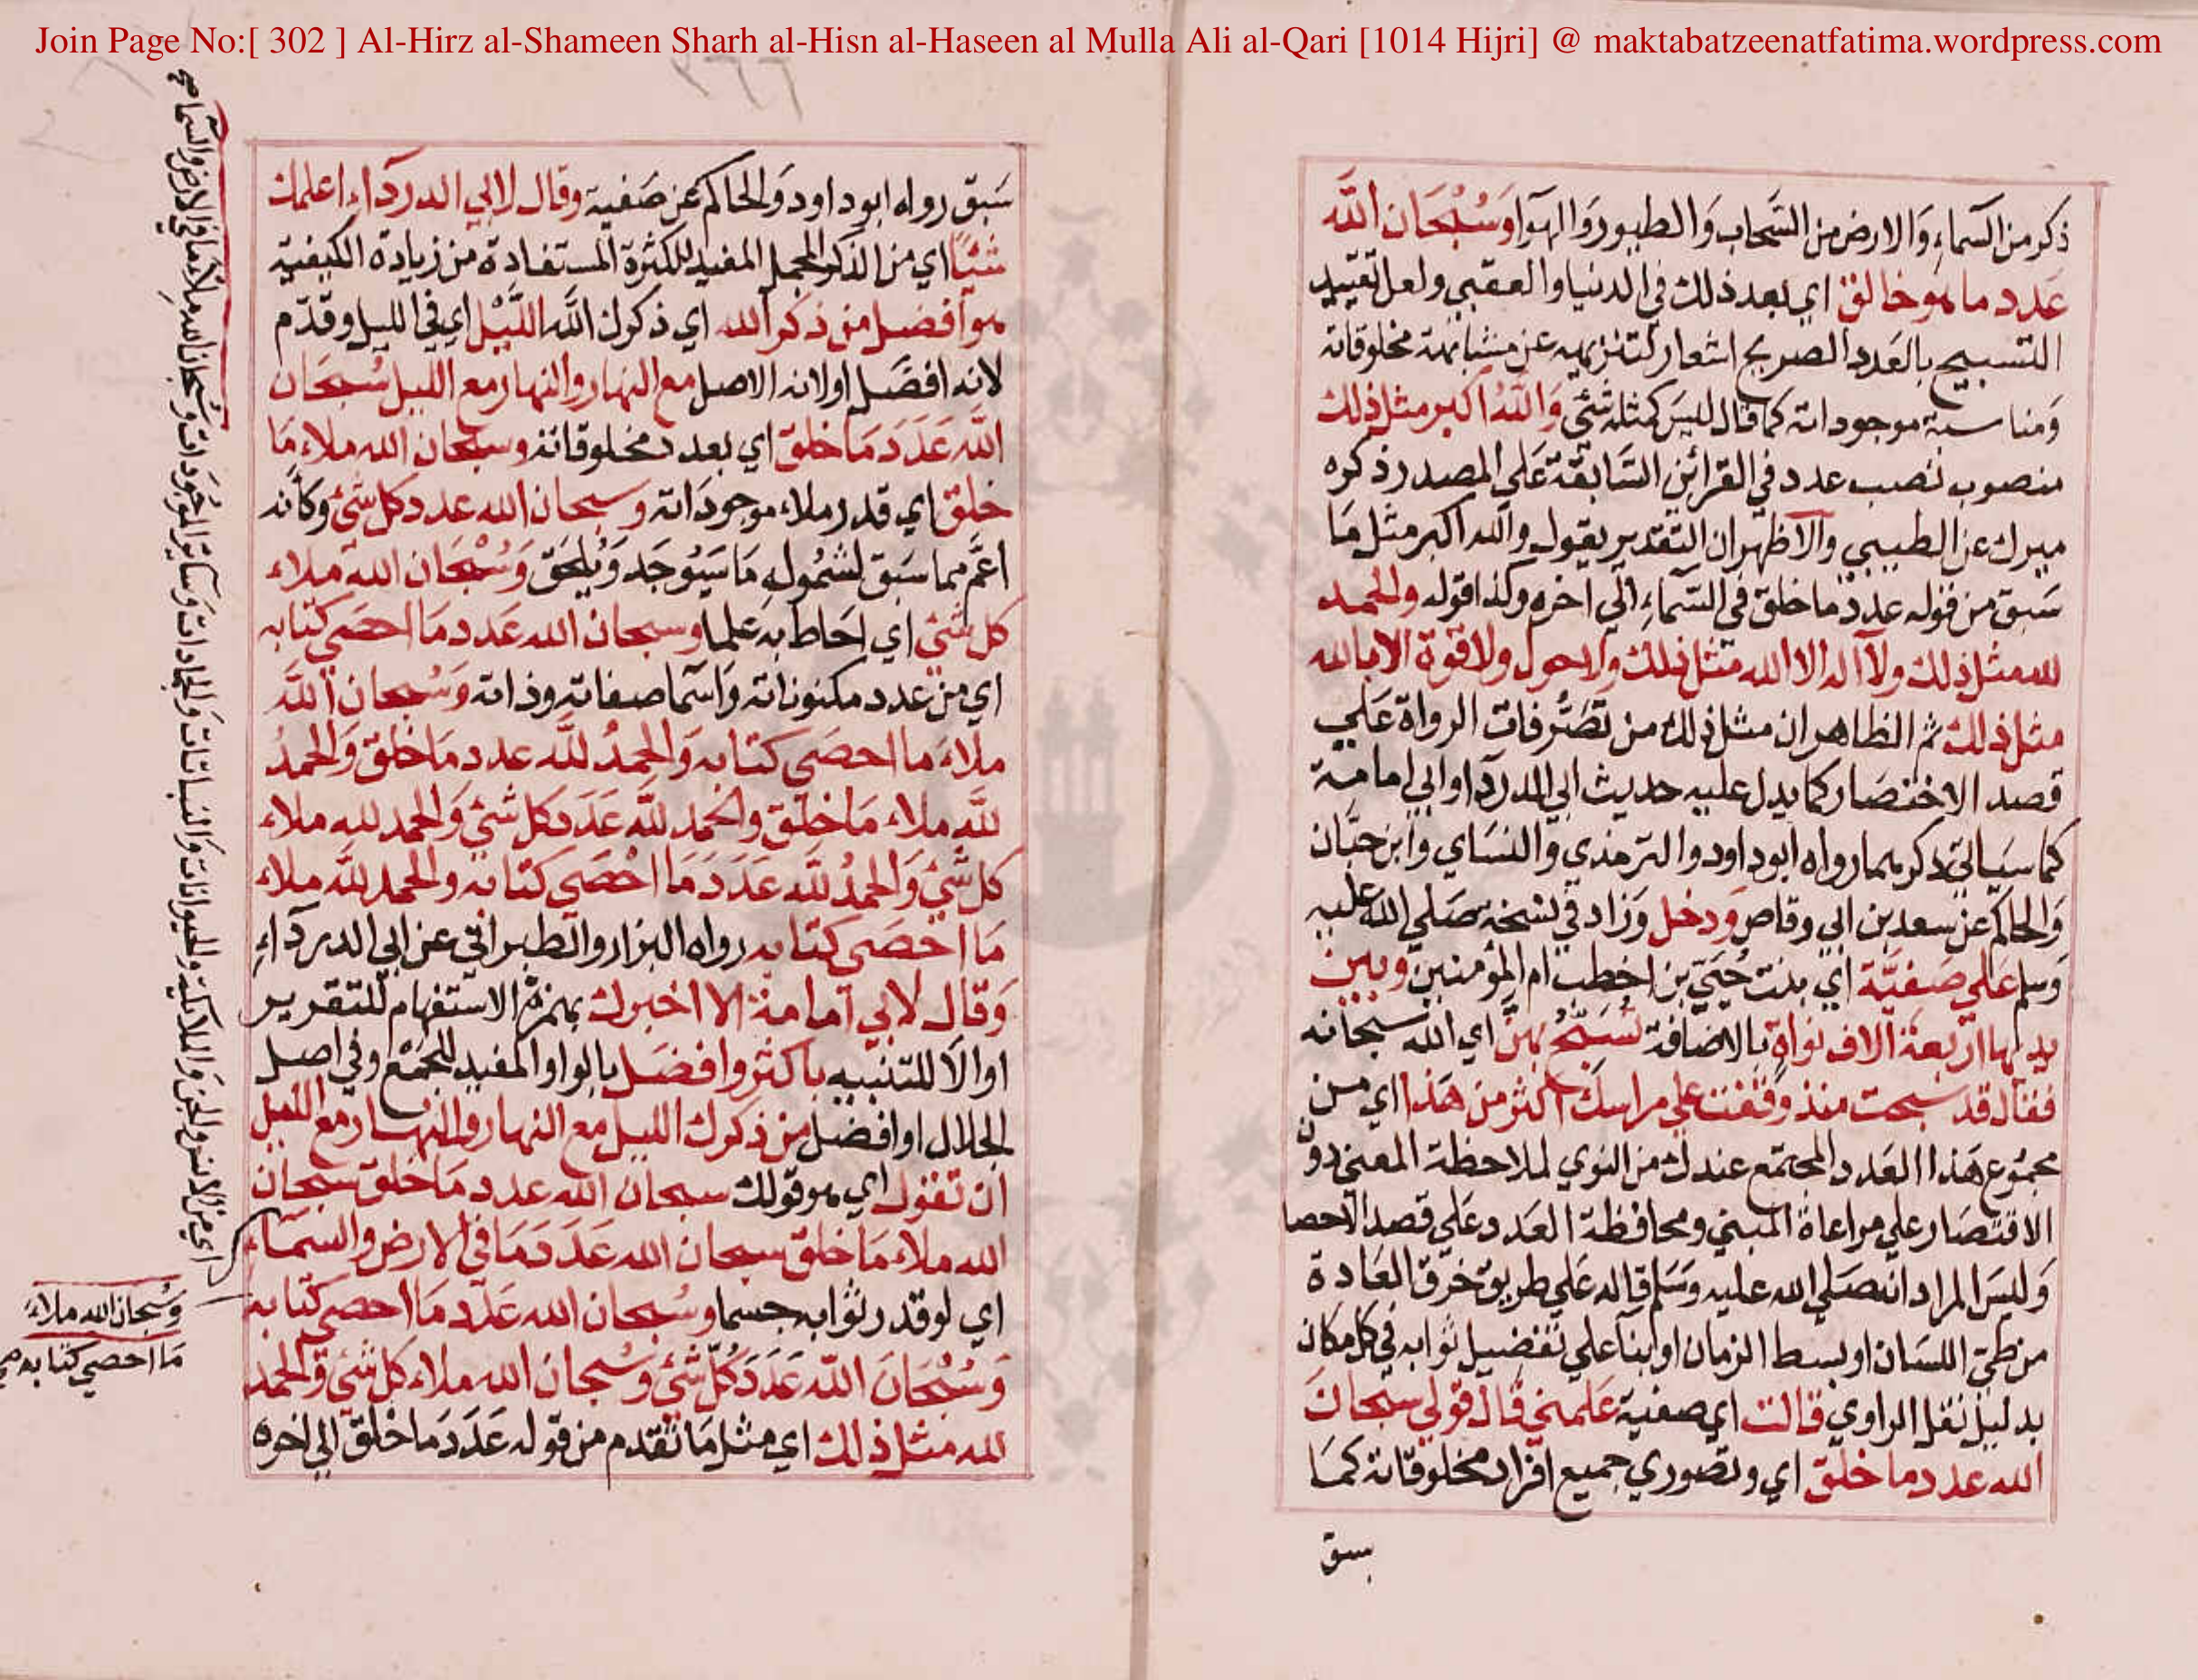 Join Page No:[ 302 ] Al-Hirz al-Shameen Sharh al-Hisn al-Haseen al Mulla Ali al-Qari [1014 Hijri] @ maktabatzeenatfatima.wordpress.com
ذكر من السماء والارض من السحاب والطيور والهوا وسبحان الله
عدد ما هو خالق اي بعد ذلك في الدنيا والعقبى ولعل تقييد
التسبيح بالعدد الصريح اشعار لتنزيهه عن مشابهة مخلوقاته
ومناسبة موجوداته كما قال ليس كمثله شئ والله اكبر مثل ذلك
منصوب نصب عدد في القرائن السابقة على المصدر ذكره
ميرك عن الطيبي والاظهر ان التقدير يقول والله اكبر مثل ما
سبق من قوله عدد ما خلق في السماء الى اخره وكذا قوله والحمد
لله مثل ذلك ولا اله الا الله مثل ذلك ولا حول ولا قوة الا بالله
مثل ذلك ثم الظاهر ان مثل ذلك من تصرفات الرواة على
قصد الاختصار كما يدل عليه حديث ابي الدردا وابي امامة
كما سياتي ذكرهما رواه ابو داود والترمذي والنساي وابن حبان
والحاكم عن سعد بن ابي وقاص ودخل وزاد في نسخة صلى الله عليه
وسلم على صفية اي بنت حيي بن اخطب ام المؤمنين وبين
يديها اربعة الاف نواة بالاضافة تسبح بهن اي الله سبحانه
فقال قد سبحت منذ وقفت على راسك اكثر من هذا اي من
مجموع هذا العدد المجتمع عندك من النوي لملاحظة المعنى دون
الاقتصار على مراعاة المبنى ومحافظة العدد على قصد الاحصا
وليس المراد انه صلى الله عليه وسلم قاله على طريق خرق العادة
من طي اللسان او بسط الزمان او بنا على تفضيل ثوابه في كل مكان
بدليل نقل الراوي قالت اي صفية علمني قال قولي سبحان
الله عدد ما خلق اي وتصوري جميع افراد مخلوقاته كما
سبق
٢٦٦
سبق رواه ابو داود والحاكم عن صفية وقال لابي الدرداء اعلمك
شيئا اي من الذكر المجمل المفيد للكثرة المستفادة من زيادة الكيفية
هو افضل من ذكر الله اي ذكرك الله الليل اي في الليل وقدم
لانه افضل او لانه الاصل مع النهار والنهار مع الليل سبحان
الله عدد ما خلق اي بعدد مخلوقاته وسبحان الله ملاء ما
خلق اي قدر ملاء موجوداته وسبحان الله عدد كل شئ وكانه
اعم مما سبق لشموله ما سيوجد ويلحق وسبحان الله ملاء
كل شئ اي احاط به علما وسبحان الله عدد ما احصى كتابه
اي من عدد مكنوناته واسما صفاته وذاته وسبحان الله
ملاء ما احصى كتابه والحمد لله عدد ما خلق والحمد
لله ملاء ما خلق والحمد لله عدد كل شئ والحمد لله ملاء
كل شئ والحمد لله عدد ما احصى كتابه والحمد لله ملاء
ما احصى كتابه رواه البزار والطبراني عن ابي الدرداء
وقال لابي امامة الا اخبرك بهمزة الاستفهام للتقرير
او الا للتنبيه باكثر وافضل بالواو المفيد للجمع وفي اصل
الجلال او افضل من ذكرك الليل مع النهار والنهار مع الليل
ان تقول اي هو قولك سبحان الله عدد ما خلق سبحان
الله ملاء ما خلق سبحان الله عدد ما في الارض والسماء
اي لو قدر ثوابه جسما وسبحان الله عدد ما احصى كتابه
وسبحان الله عدد كل شئ وسبحان الله ملاء كل شئ والحمد
لله مثل ذلك اي مثل ما تقدم من قوله عدد ما خلق الى اخره
اي من الانس والجن والملائكة والحيوانات والنباتات والجمادات وسائر الموجودات وسبحان الله ملاء ما في الارض والسما صح
وسبحان الله ملاء
ما احصى كتابه صح